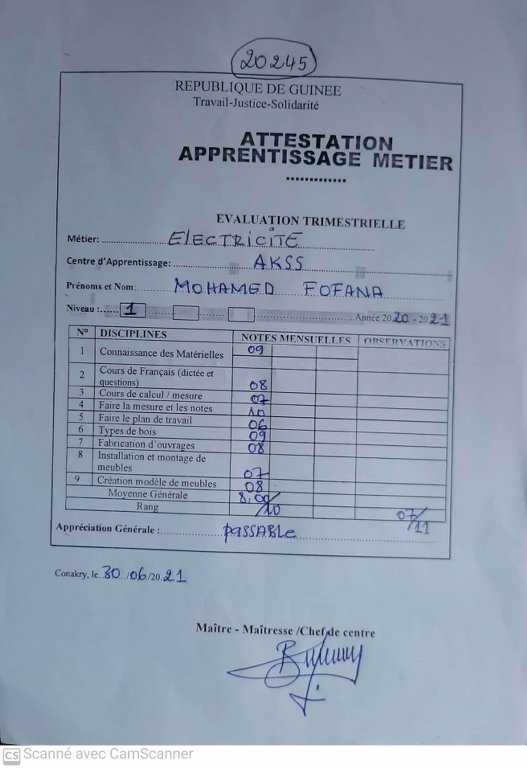 20245
REPUBLIQUE DE GUINEE
Travail-Justice-Solidarité
ATTESTATION
APPRENTISSAGE METIER
EVALUATION TRIMESTRIELLE
Métier: ELECTRICITÉ
Centre d'Apprentissage: AKSS
Prénoms et Nom: MOHAMED FOFANA
Niveau : 1 Année 2020 - 2021
N° DISCIPLINES NOTES MENSUELLES OBSERVATIONS
1 Connaissance des Matérielles 09
2 Cours de Français (dictée et
questions) 08
3 Cours de calcul / mesure 07
4 Faire la mesure et les notes 10
5 Faire le plan de travail 06
6 Types de bois 09
7 Fabrication d'ouvrages 08
8 Installation et montage de
meubles 07
9 Création modèle de meubles 08
Moyenne Générale 8,00/10
Rang 07/11
Appréciation Générale : PASSABLE
Conakry, le 30/06/2021
Maître - Maîtresse /Chef de centre
CS Scanné avec CamScanner